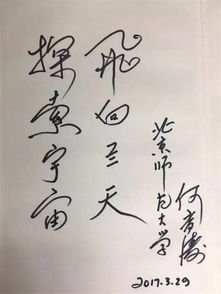 探索宇宙
飛向兰天
北京师范大学
何香涛
2017.3.29